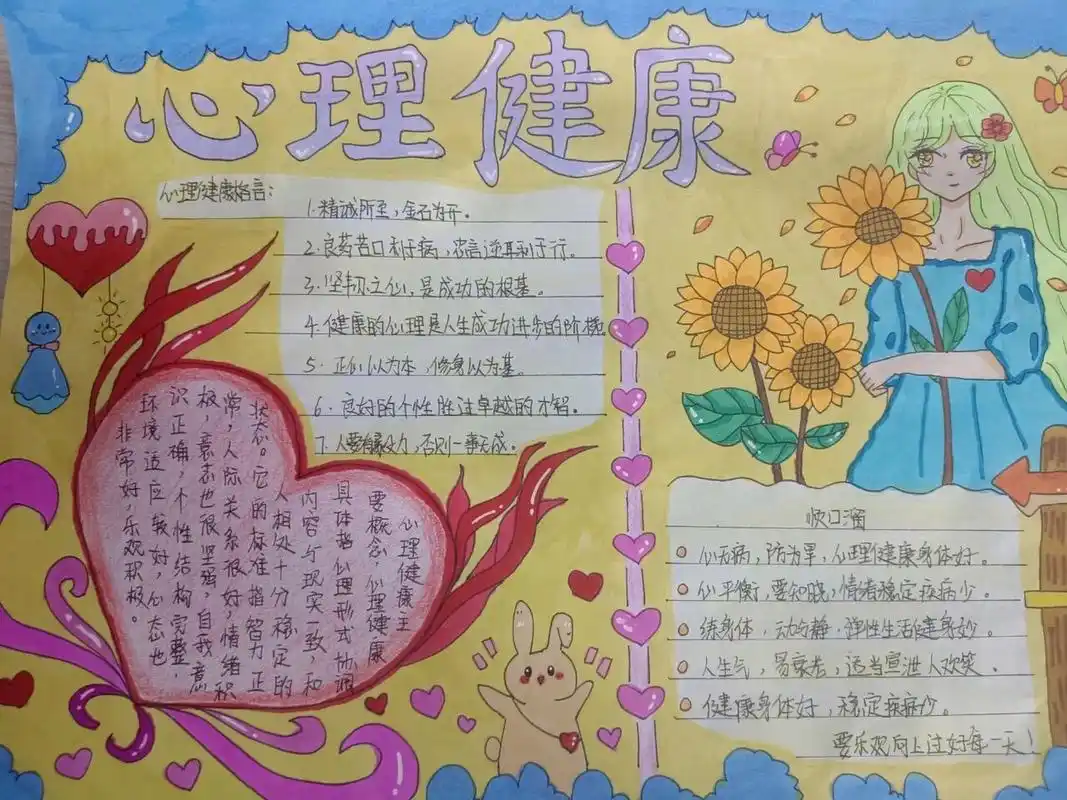 心理健康
心理健康格言:
1.精诚所至,金石为开。
2.良药苦口利于病,忠言逆耳利于行。
3.坚韧之心,是成功的根基。
4.健康的心理是人生成功进步的阶梯
5.正心以为本,修身以为基。
6.良好的个性胜过卓越的才智。
7.人要有毅力,否则一事无成。
心理健康主
要概念,心理健康
具体指心理形式协调
内容与现实一致,和
人相处十分稳定的
状态。它的标准指智力正
常,人际关系很好,情绪积
极,意志也很坚强,自我意
识正确,个性结构完整,
环境适应较好,心态也
非常好,乐观积极。
顺口溜
心无病,防为早,心理健康身体好。
心平衡,要知晓,情绪稳定疾病少。
练身体,动与静,弹性生活健身妙。
人生气,易衰老,适当宣泄人欢笑。
健康身体好,稳定疾病少。
要乐观向上过好每一天!